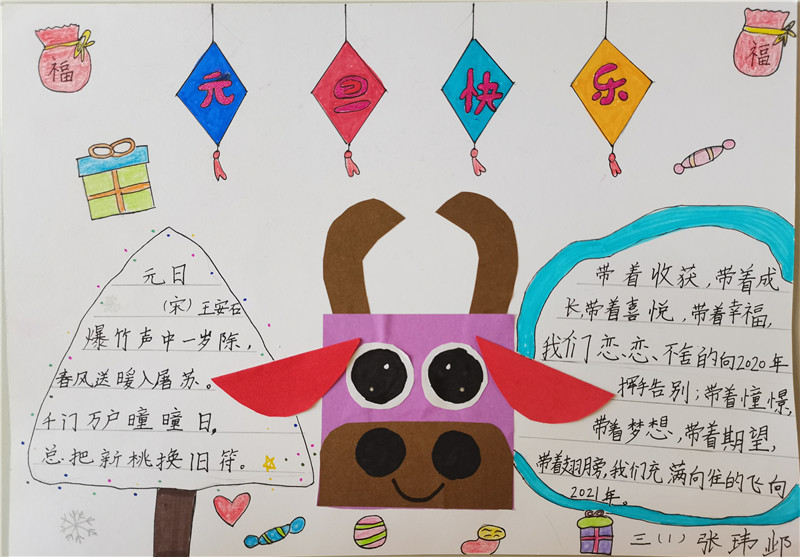 福
福
元旦快乐
元日
(宋) 王安石
爆竹声中一岁除,
春风送暖入屠苏。
千门万户曈曈日,
总把新桃换旧符。
带着收获,带着成
长,带着喜悦,带着幸福,
我们恋恋不舍的向2020年
挥手告别;带着憧憬,
带着梦想,带着期望,
带着翅膀,我们充满向往的飞向
2021年。
三(1) 张玮